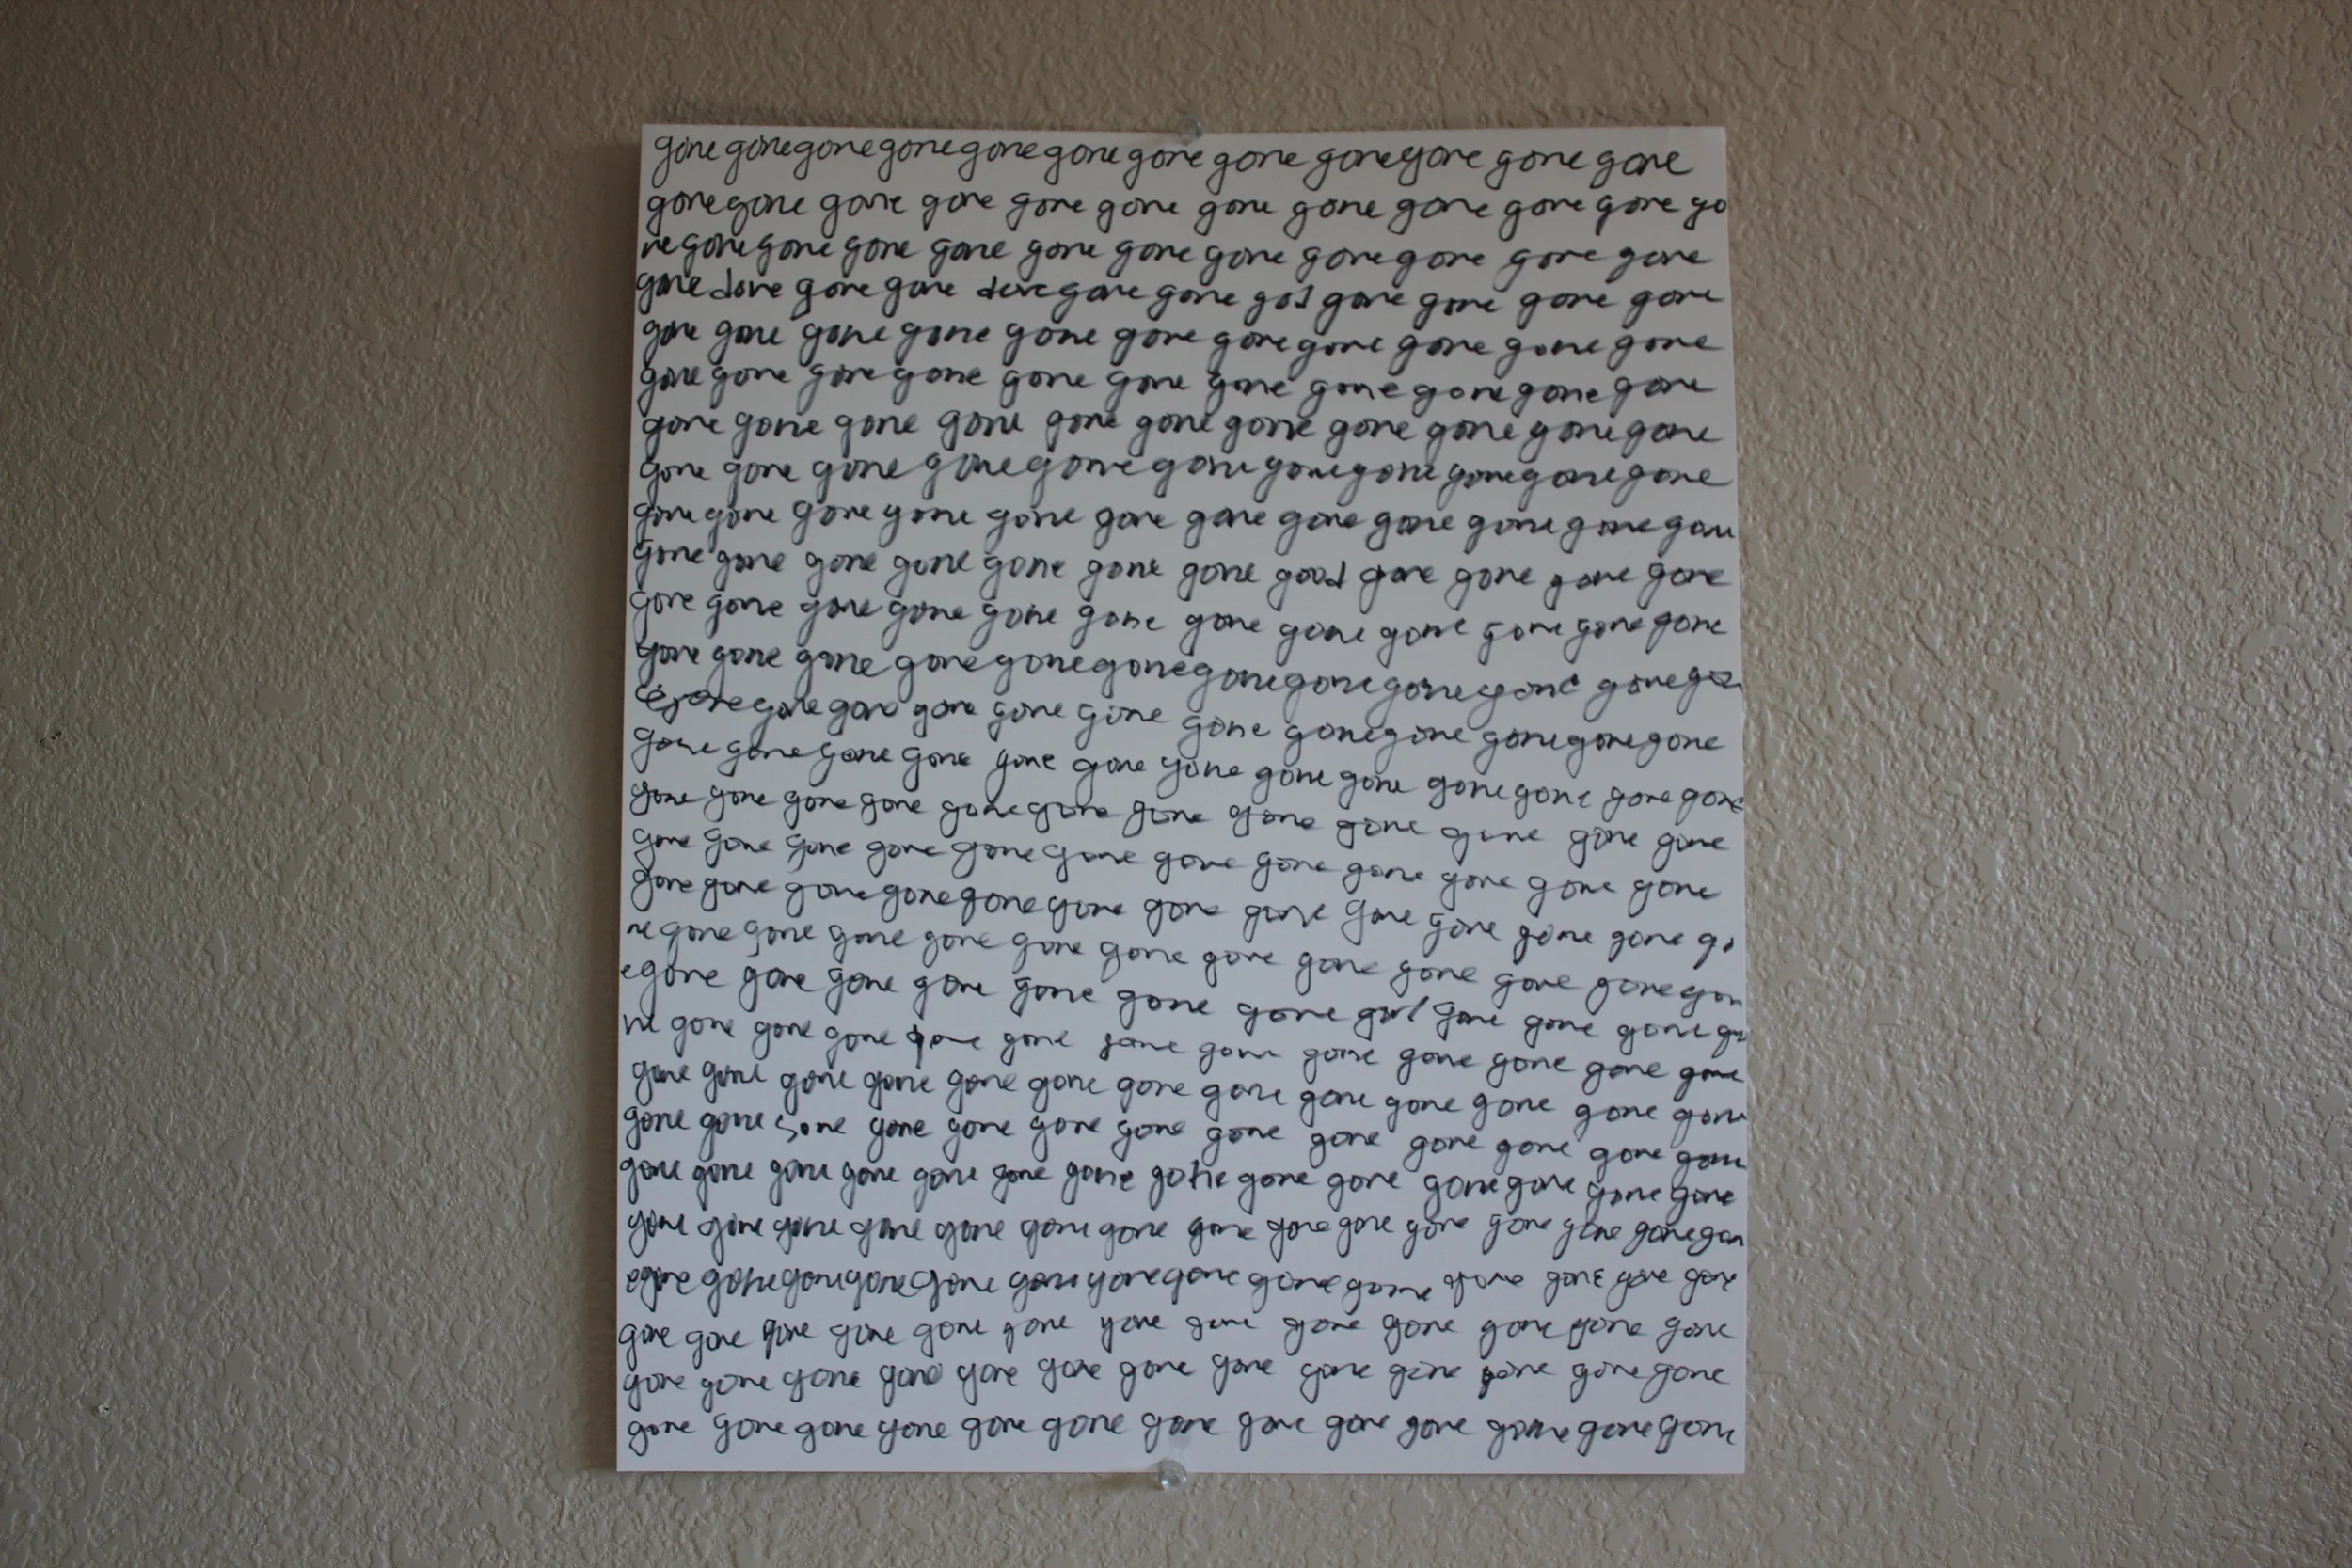 gone gone gone gone gone gone gone gone gone gone gone gone
gone gone gone gone gone gone gone gone gone gone gone go
ne gone gone gone gone gone gone gone gone gone gone gone
gone done gone gone gone gone god gone gone gone gone
gone gone gone gone gone gone gone gone gone gone gone
gone gone gone gone gone gone gone gone gone gone gone
gone gone gone gone gone gone gone gone gone gone gone
gone gone gone gone gone gone gone gone gone gone gone
gone gone gone gone gone gone gone gone gone gone gone gon
gone gone gone gone gone gone gone good gone gone gone gone
gone gone gone gone gone gone gone gone gone gone gone gone
gone gone gone gone gone gone gone gone gone gone gone go
gone gone gone gone gone gone gone gone gone gone gone gone
gone gone gone gone gone gone gone gone gone gone gone gone gone
gone gone gone gone gone gone gone gone gone gone gone gone
gone gone gone gone gone gone gone gone gone gone gone gone
gone gone gone gone gone gone gone gone gone gone gone gone go
ne gone gone gone gone gone gone gone gone gone gone gone gon
e gone gone gone gone gone gone gone girl gone gone gone go
ne gone gone gone gone gone gone gone gone gone gone gone gone
gone gone gone gone gone gone gone gone gone gone gone gone gone
gone gone gone gone gone gone gone gone gone gone gone gone gone
gone gone gone gone gone gone gone gone gone gone gone gone gone gone
gone gone gone gone gone gone gone gone gone gone gone gone gone gone gon
e gone gone gone gone gone gone gone gone gone gone gone gone gone gone
gone gone gone gone gone gone gone gone gone gone gone gone gone
gone gone gone gone gone gone gone gone gone gone gone gone gone
gone gone gone gone gone gone gone gone gone gone gone gone gone